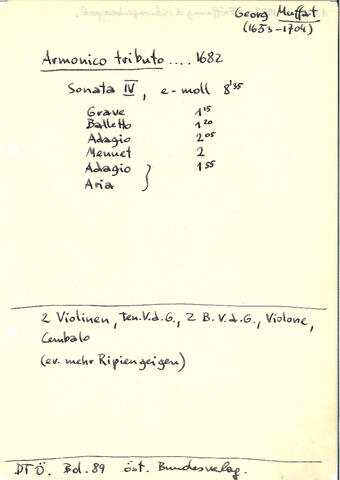 Georg Muffat
(1653-1704)
Armonico tributo .... 1682
Sonata IV, e-moll 8'35
Grave 1'15
Balletto 1'20
Adagio 2'05
Menuet 2
Adagio } 1'55
Aria
2 Violinen, Ten.V.d.G., 2 B.V.d.G., Violone,
Cembalo
(ev. mehr Ripiengeigen)
DTÖ. Bd. 89 öst. Bundesverlag.